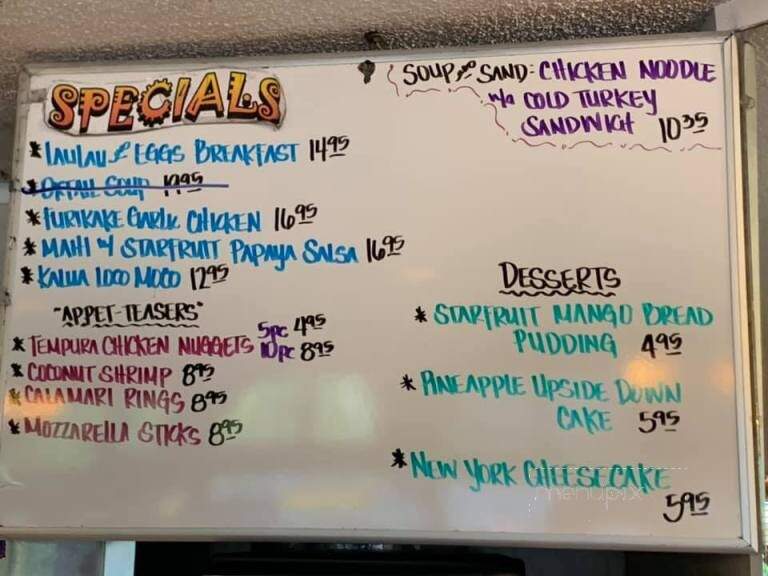 SPECIALS
* LAULAU & EGGS BREAKFAST 14.95
* OXTAIL SOUP 17.95
* FURIKAKE GARLIC CHICKEN 16.95
* MAHI w/ STARFRUIT PAPAYA SALSA 16.95
* KALUA LOCO MOCO 12.95
"APPET-TEASERS"
* TEMPURA CHICKEN NUGGETS 5pc 4.95
10pc 8.95
* COCONUT SHRIMP 8.95
* CALAMARI RINGS 8.95
* MOZZARELLA STICKS 8.95
SOUP and SAND: CHICKEN NOODLE
w/a COLD TURKEY
SANDWICH 10.35
DESSERTS
* STARFRUIT MANGO BREAD
PUDDING 4.95
* PINEAPPLE UPSIDE DOWN
CAKE 5.95
* NEW YORK CHEESECAKE
5.95
menupix